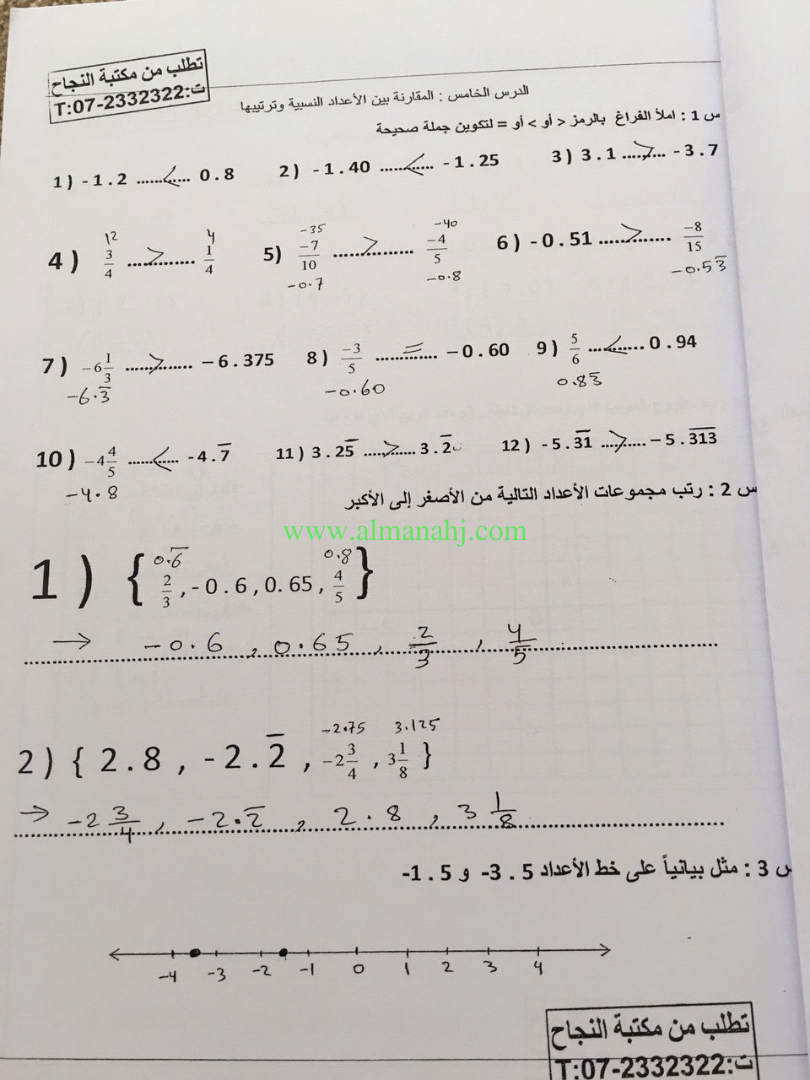 تطلب من مكتبة النجاح
ت:T:07-2332322
الدرس الخامس : المقارنة بين الأعداد النسبية وترتيبها
س 1 : املأ الفراغ بالرمز < أو > أو = لتكوين جملة صحيحة
1 ) - 1 . 2 ......<.... 0 . 8 2 ) - 1 . 40 ......<.... - 1 . 25 3 ) 3 . 1 .....>.... - 3 . 7
12 4 -35 -40
4 ) 3/4 ....>.......... 1/4 5) -7/10 ......>......... -4/5 6 ) - 0 . 51 .....>........ -8/15
-0.7 -0.8 -0.53̅
7 ) -6 1/3 .....>....... – 6 . 375 8 ) -3/5 .....=....... – 0 . 60 9 ) 5/6 .....<...... 0 . 94
-6.3̅ -0.60 0.83̅
10 ) -4 4/5 .....<.... - 4 . 7̅ 11 ) 3 . 25̅ ......>..... 3 . 2̅ 12 ) - 5 . 3̅1̅ ....>...... – 5 . 3̅1̅3̅
-4.8
س 2 : رتب مجموعات الأعداد التالية من الأصغر إلى الأكبر
www.almanahj.com
0.6̅ 0.8
1 ) { 2/3 , - 0 . 6 , 0. 65 , 4/5 }
→ -0.6 , 0.65 , 2/3 , 4/5
-2.75 3.125
2 ) { 2 . 8 , - 2 . 2̅ , -2 3/4 , 3 1/8 }
→ -2 3/4 , -2.2̅ , 2.8 , 3 1/8
س 3 : مثل بيانياً على خط الأعداد 5 . 3- و 5 . 1-
-4 -3 -2 -1 0 1 2 3 4
تطلب من مكتبة النجاح
ت:T:07-2332322